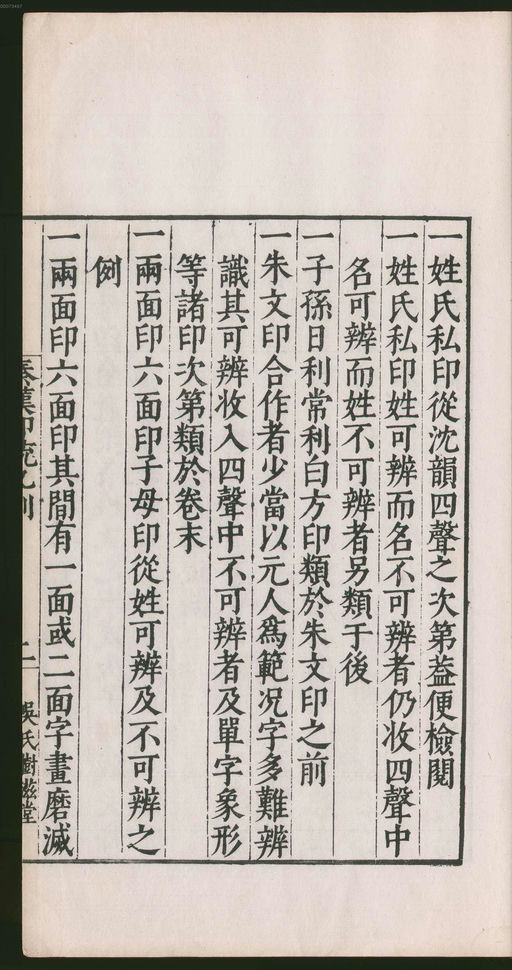 00073467
一姓氏私印從沈韻四聲之次第葢便檢閱
一姓氏私印姓可辨而名不可辨者仍收四聲中
名可辨而姓不可辨者另類于後
一子孫日利常利白方印類於朱文印之前
一朱文印合作者少當以元人爲範况字多難辨
識其可辨收入四聲中不可辨者及單字象形
等諸印次第類於卷末
一兩面印六面印子母印從姓可辨及不可辨之
例
一兩面印六面印其間有一面或二面字畫磨滅
秦漢印統凡例
二
吳氏樹滋堂